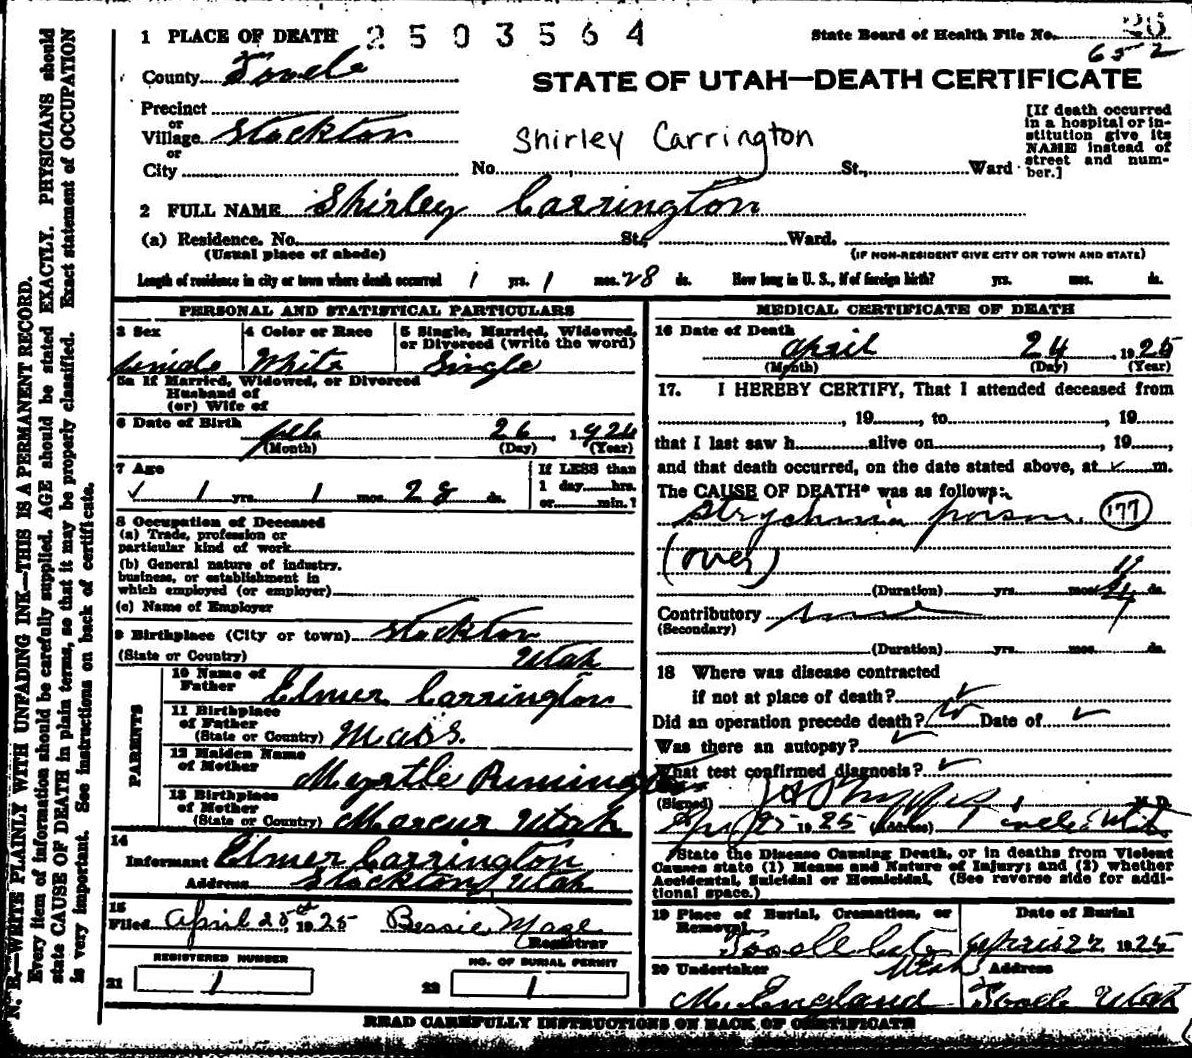 1 PLACE OF DEATH 2503564
State Board of Health File No.
652
County Tooele
STATE OF UTAH—DEATH CERTIFICATE
Precinct
or
Village Stockton
or
City
Shirley Carrington
No. St., Ward
[If death occurred
in a hospital or in-
stitution give its
NAME instead of
street and num-
ber.]
2 FULL NAME Shirley Carrington
(a) Residence. No. St., Ward.
(Usual place of abode)
(IF NON-RESIDENT GIVE CITY OR TOWN AND STATE)
Length of residence in city or town where death occurred 1 yrs. 1 mos. 28 ds. How long in U. S., if of foreign birth? yrs. mos. ds.
PERSONAL AND STATISTICAL PARTICULARS
3 Sex
female
4 Color or Race
White
5 Single, Married, Widowed,
or Divorced (write the word)
Single
5a If Married, Widowed, or Divorced
Husband of
(or) Wife of
6 Date of Birth
Feb 26, 1924
(Month) (Day) (Year)
7 Age
1 yrs. 1 mos. 28 ds.
If LESS than
1 day hrs.
or min.?
8 Occupation of Deceased
(a) Trade, profession or
particular kind of work
(b) General nature of industry,
business, or establishment in
which employed (or employer)
(c) Name of Employer
9 Birthplace (City or town) Stockton
(State or Country) Utah
PARENTS
10 Name of
Father Elmer Carrington
11 Birthplace
of Father
(State or Country) Mass.
12 Maiden Name
of Mother Myrtle Remington
13 Birthplace of
Mother
(State or Country) Mercur Utah
14
Informant Elmer Carrington
Address Stockton, Utah
15
Filed April 25th, 1925 Bessie
Registrar
REGISTERED NUMBER
21 1
NO. OF BURIAL PERMIT
22 1
MEDICAL CERTIFICATE OF DEATH
16 Date of Death
April 24, 1925
(Month) (Day) (Year)
17. I HEREBY CERTIFY, That I attended deceased from
, 19 , to , 19
that I last saw h alive on , 19 ,
and that death occurred, on the date stated above, at m.
The CAUSE OF DEATH* was as follows:
Strychnia poison. 177
(over)
(Duration) yrs. mos. ds.
Contributory
(Secondary)
(Duration) yrs. mos. ds.
18 Where was disease contracted
if not at place of death?
Did an operation precede death? No Date of
Was there an autopsy?
What test confirmed diagnosis?
(Signed) M.D.
Apr 25 1925 (Address) Tooele, Utah
*State the Disease Causing Death, or in deaths from Violent
Causes state (1) Means and Nature of Injury; and (2) whether
Accidental, Suicidal or Homicidal. (See reverse side for addi-
tional space.)
19 Place of Burial, Cremation, or
Removal
Tooele City
Utah
Date of Burial
April 1925
20 Undertaker Address
M. England Tooele Utah
READ CAREFULLY INSTRUCTIONS ON BACK OF CERTIFICATE
N. B.—WRITE PLAINLY WITH UNFADING INK—THIS IS A PERMANENT RECORD.
Every item of information should be carefully supplied. AGE should be stated EXACTLY. PHYSICIANS should
state CAUSE OF DEATH in plain terms, so that it may be properly classified. Exact statement of OCCUPATION
is very important. See instructions on back of certificate.